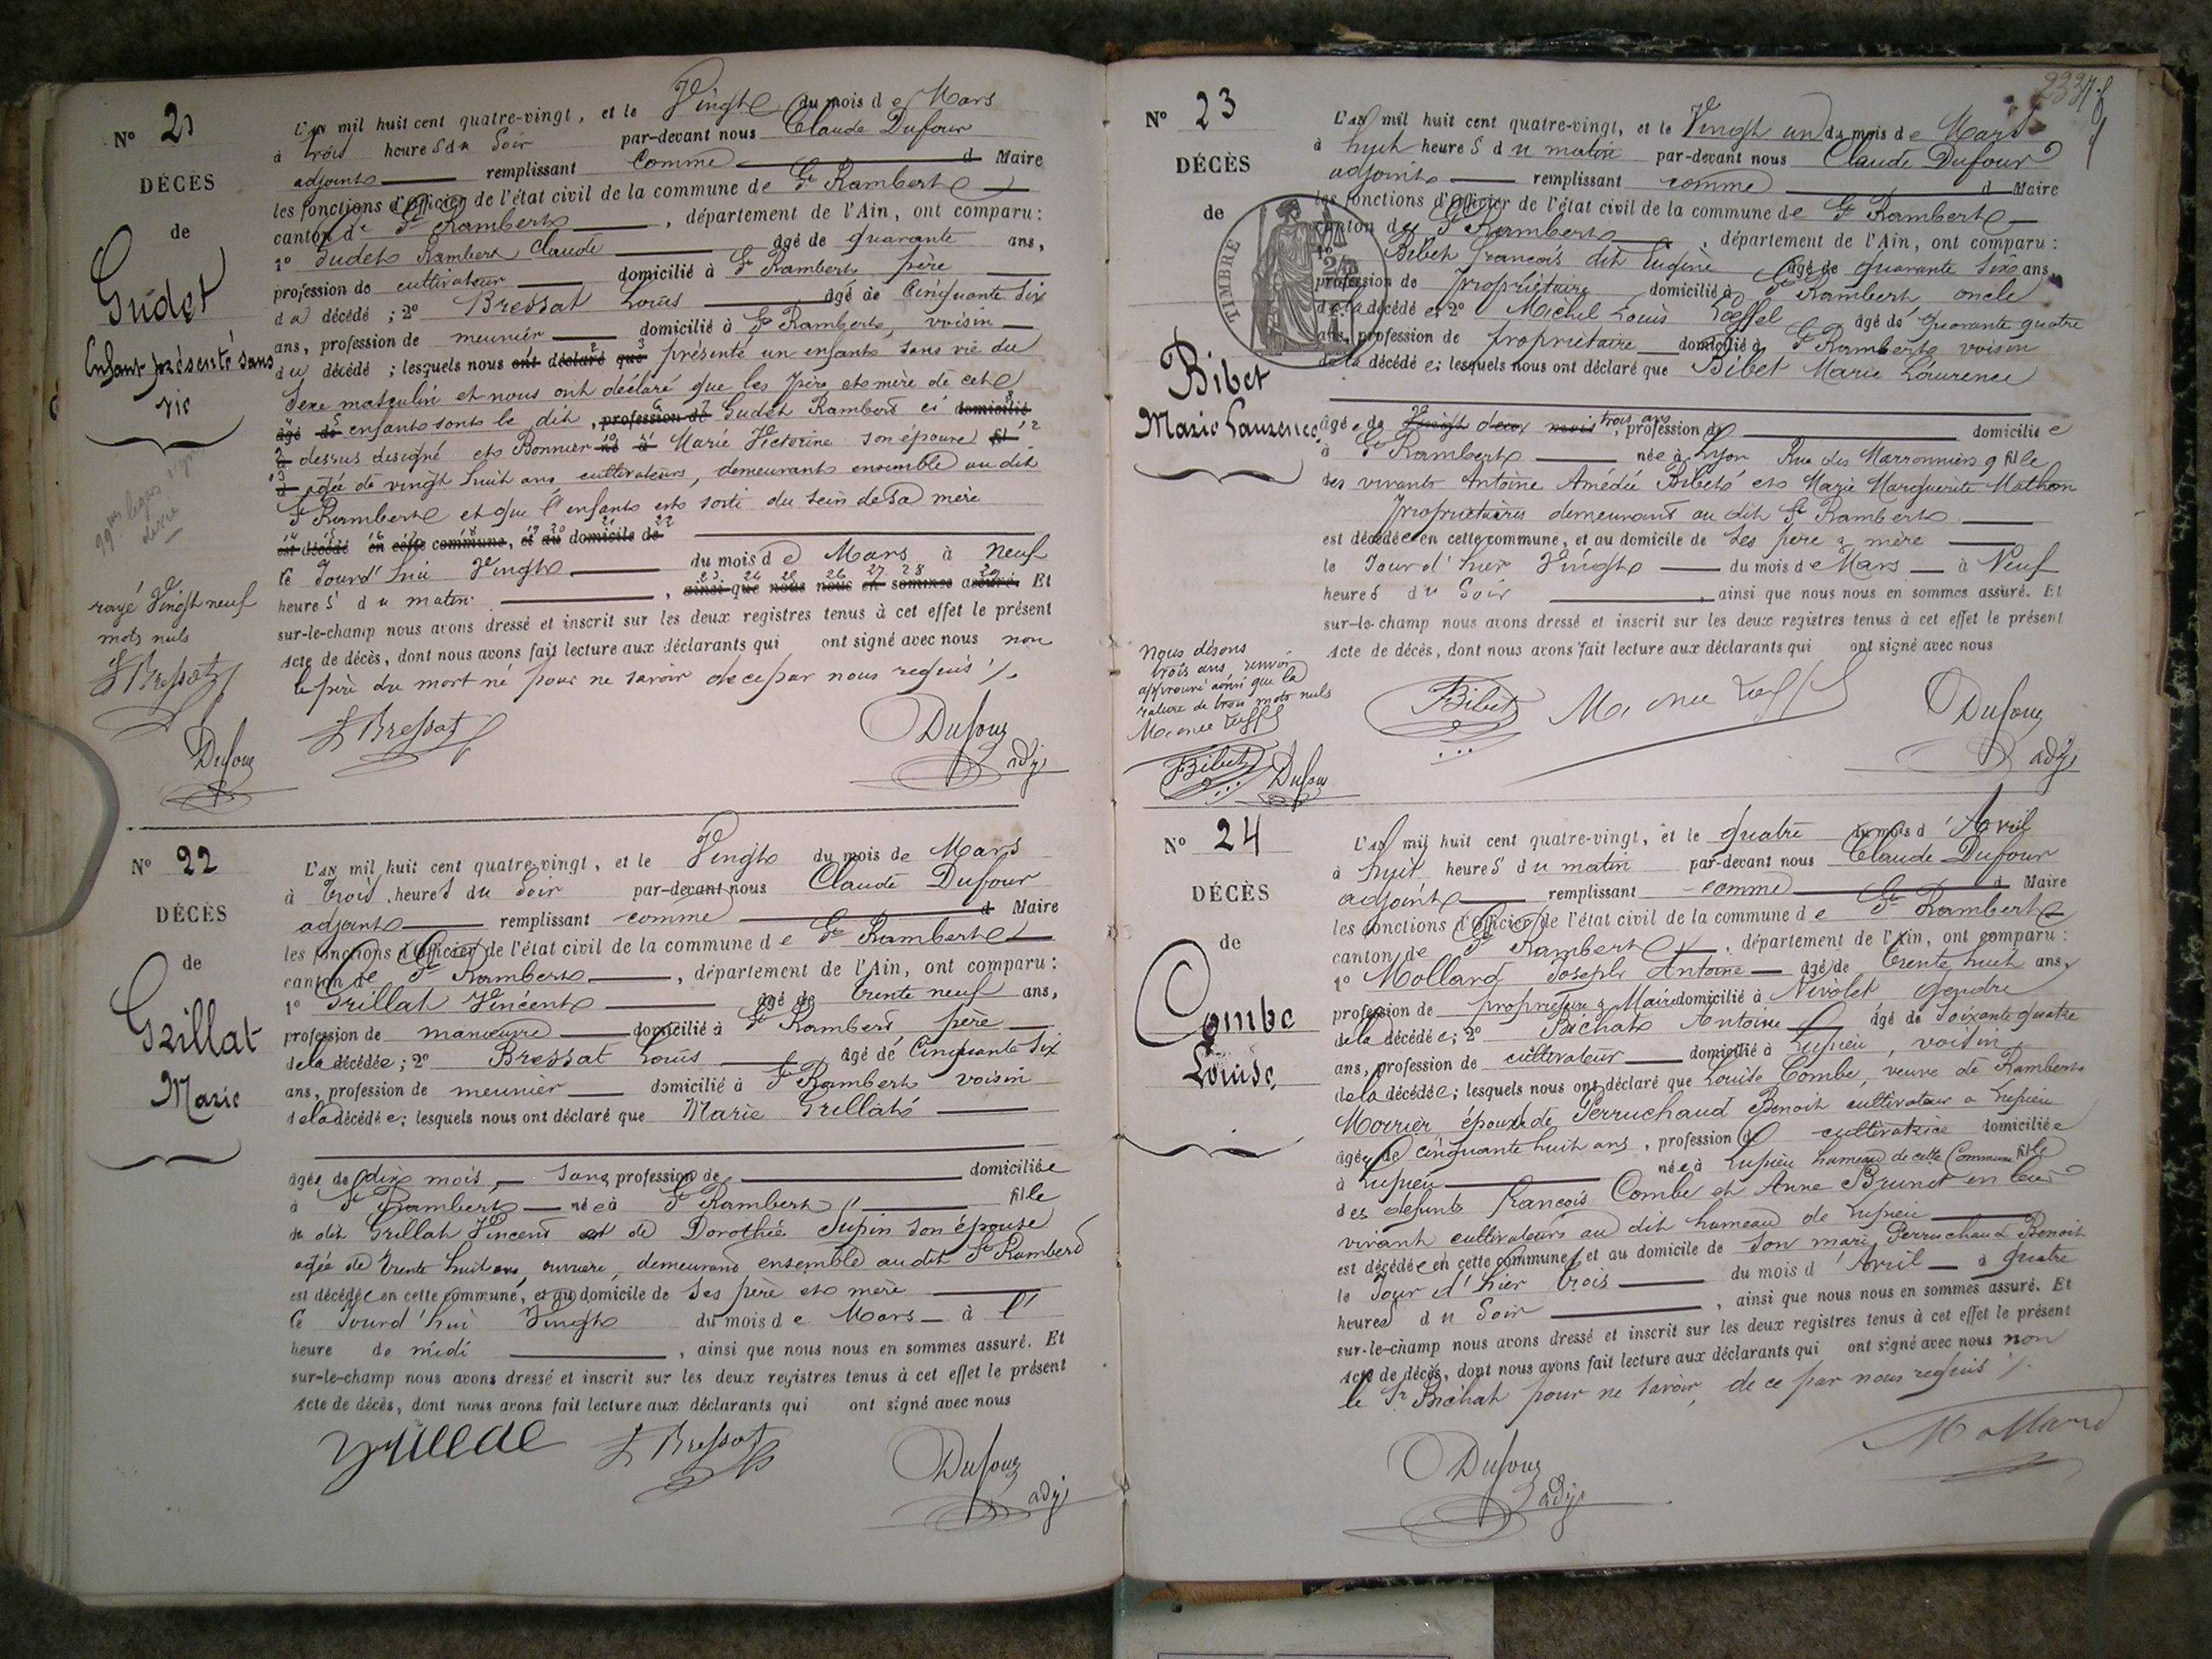 N° 21
DÉCÈS
de
Gudet
Enfant présenté sans
vie
rayé Vingt neuf
mots nuls
L Bressat
Dufour
L'AN mil huit cent quatre-vingt, et le Vingt du mois de Mars
à trois heures du Soir par-devant nous Claude Dufour
adjoint remplissant comme d Maire
les fonctions d'Officier de l'état civil de la commune de St Rambert
canton de St Rambert, département de l'Ain, ont comparu :
1° Gudet Rambert Claude âgé de quarante ans,
profession de cultivateur domicilié à St Rambert père
du décédé ; 2° Bressat Louis âgé de Cinquante six
ans, profession de meunier domicilié à St Rambert, voisin
du décédé ; lesquels nous ont déclaré que présenté un enfant sans vie du
Sexe masculin et nous ont déclaré que les père et mère de cet
âgé de enfant sont le dit, profession de Gudet Rambert ci domicilié
à dessus désigné et Bonnier né à Marie Victorine son épouse fil
d âgée de vingt huit ans cultivateurs, demeurant ensemble au dit
St Rambert et que l'enfant est sorti du sein de sa mère
est décédé en cette commune, et au domicile de
le Jourd'hui Vingt du mois de Mars à neuf
heures du matin, ainsi que nous nous en sommes assuré. Et
sur-le-champ nous avons dressé et inscrit sur les deux registres tenus à cet effet le présent
acte de décès, dont nous avons fait lecture aux déclarants qui ont signé avec nous non
le père du mort né pour ne savoir de ce par nous requis ./.
L Bressat Dufour adj
N° 22
DÉCÈS
de
Grillat
Marie
L'AN mil huit cent quatre-vingt, et le Vingt du mois de Mars
à trois heures du Soir par-devant nous Claude Dufour
adjoint remplissant comme d Maire
les fonctions d'Officier de l'état civil de la commune de St Rambert
canton de St Rambert, département de l'Ain, ont comparu :
1° Grillat Vincent âgé de trente neuf ans,
profession de manoeuvre domicilié à St Rambert père
de la décédée ; 2° Bressat Louis âgé de Cinquante six
ans, profession de meunier domicilié à St Rambert voisin
de la décédée ; lesquels nous ont déclaré que Marie Grillat
âgée de dix mois, sans profession de domiciliée
à St Rambert née à St Rambert fille
du dit Grillat Vincent et de Dorothée Supin son épouse
âgée de trente huit ans, ouvrière, demeurant ensemble au dit St Rambert
est décédée en cette commune, et au domicile de ses père et mère
le Jourd'hui Vingt du mois de Mars à l'
heure de midi, ainsi que nous nous en sommes assuré. Et
sur-le-champ nous avons dressé et inscrit sur les deux registres tenus à cet effet le présent
acte de décès, dont nous avons fait lecture aux déclarants qui ont signé avec nous
L Bressat Dufour adj
N° 23
DÉCÈS
de
TIMBRE
Bibet
Marie Laurence
Nous disons
trois ans, renvoi
approuvé ainsi que la
rature de trois mots nuls
Bibet Dufour
L'AN mil huit cent quatre-vingt, et le Vingt un du mois de Mars
à huit heures du matin par-devant nous Claude Dufour
adjoint remplissant comme d Maire
les fonctions d'Officier de l'état civil de la commune de St Rambert
canton de St Rambert, département de l'Ain, ont comparu :
1° Bibet françois dit Eugène âgé de quarante six ans,
profession de propriétaire domicilié à St Rambert oncle
de la décédé e 2° Michel Louis Loeffel âgé de quarante quatre
ans, profession de propriétaire domicilié à St Rambert voisin
de la décédé e ; lesquels nous ont déclaré que Bibet Marie Laurence
âgée de Vingt deux mois trois ans, profession de domiciliée
à St Rambert née à Lyon Rue des Marronniers 9 fille
des vivants Antoine Amédée Bibet et Marie Marguerite Mathon
propriétaires demeurant au dit St Rambert
est décédée en cette commune, et au domicile de ses père & mère
le Jour d'hier Vingt du mois de Mars à Neuf
heures du Soir, ainsi que nous nous en sommes assuré. Et
sur-le-champ nous avons dressé et inscrit sur les deux registres tenus à cet effet le présent
acte de décès, dont nous avons fait lecture aux déclarants qui ont signé avec nous
Bibet Dufour adj
N° 24
DÉCÈS
de
Combe
Louise
L'AN mil huit cent quatre-vingt, et le quatre du mois d'Avril
à huit heures du matin par-devant nous Claude Dufour
adjoint remplissant comme d Maire
les fonctions d'Officier de l'état civil de la commune de St Rambert
canton de St Rambert, département de l'Ain, ont comparu :
1° Mollard Joseph Antoine âgé de trente huit ans,
profession de propriétaire & Maire domicilié à Nivolet gendre
de la décédée ; 2° Bichat Antoine âgé de soixante quatre
ans, profession de cultivateur domicilié à Lupieu, voisin
de la décédée ; lesquels nous ont déclaré que Louise Combe, veuve de Rambert
Morrier épouse de Perruchaud Benoit cultivateur à Lupieu
âgée de cinquante huit ans, profession de cultivatrice domiciliée
à Lupieu née à Lupieu hameau de cette Commune fille
des defunts françois Combe et Anne Brunet en leur
vivant cultivateurs au dit hameau de Lupieu
est décédée en cette commune, et au domicile de son mari Perruchaud Benoit
le Jour d'hier trois du mois d'Avril à quatre
heures du Soir, ainsi que nous nous en sommes assuré. Et
sur-le-champ nous avons dressé et inscrit sur les deux registres tenus à cet effet le présent
acte de décès, dont nous avons fait lecture aux déclarants qui ont signé avec nous non
le Sr Bichat pour ne savoir, de ce par nous requis ./.
Mollard
Dufour adj